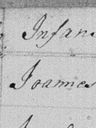 Infan
Joannes